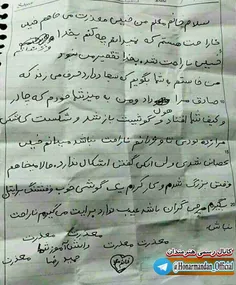 سلام خانم معلم من خیلی معذرت می خواهم خیلی
ناراحت هستم که نمی دانم چه کنم بخدا
خیلی ناراحت شدم بخدا تقصیر من نبود
من خواستم به شما بگویم که شما دارد حرف می زند که
صادق مرا داد و من به میز شما خوردم که چادر
و کیف شما افتاد و گوشیت باز شد و شکست کمکی
مرا زده بودی تا خودم ناراحت نباشد می دانم خیلی
عصبانی شدی ولی انگی گفتی اشکال ندارد حالا میخواهم
وقتی بزرگ شدم و کار کردم یک گوشی خوب و قشنگ برایتان
بگیرم گران باشد عیب ندارد برایت می گیرم ناراحت
نباشد
معذرت معذرت
معذرت معذرت
دانش آموز شما
حمید رضا
معذرت
کانال رسمی هنرمندان
@Honarmandan_Official